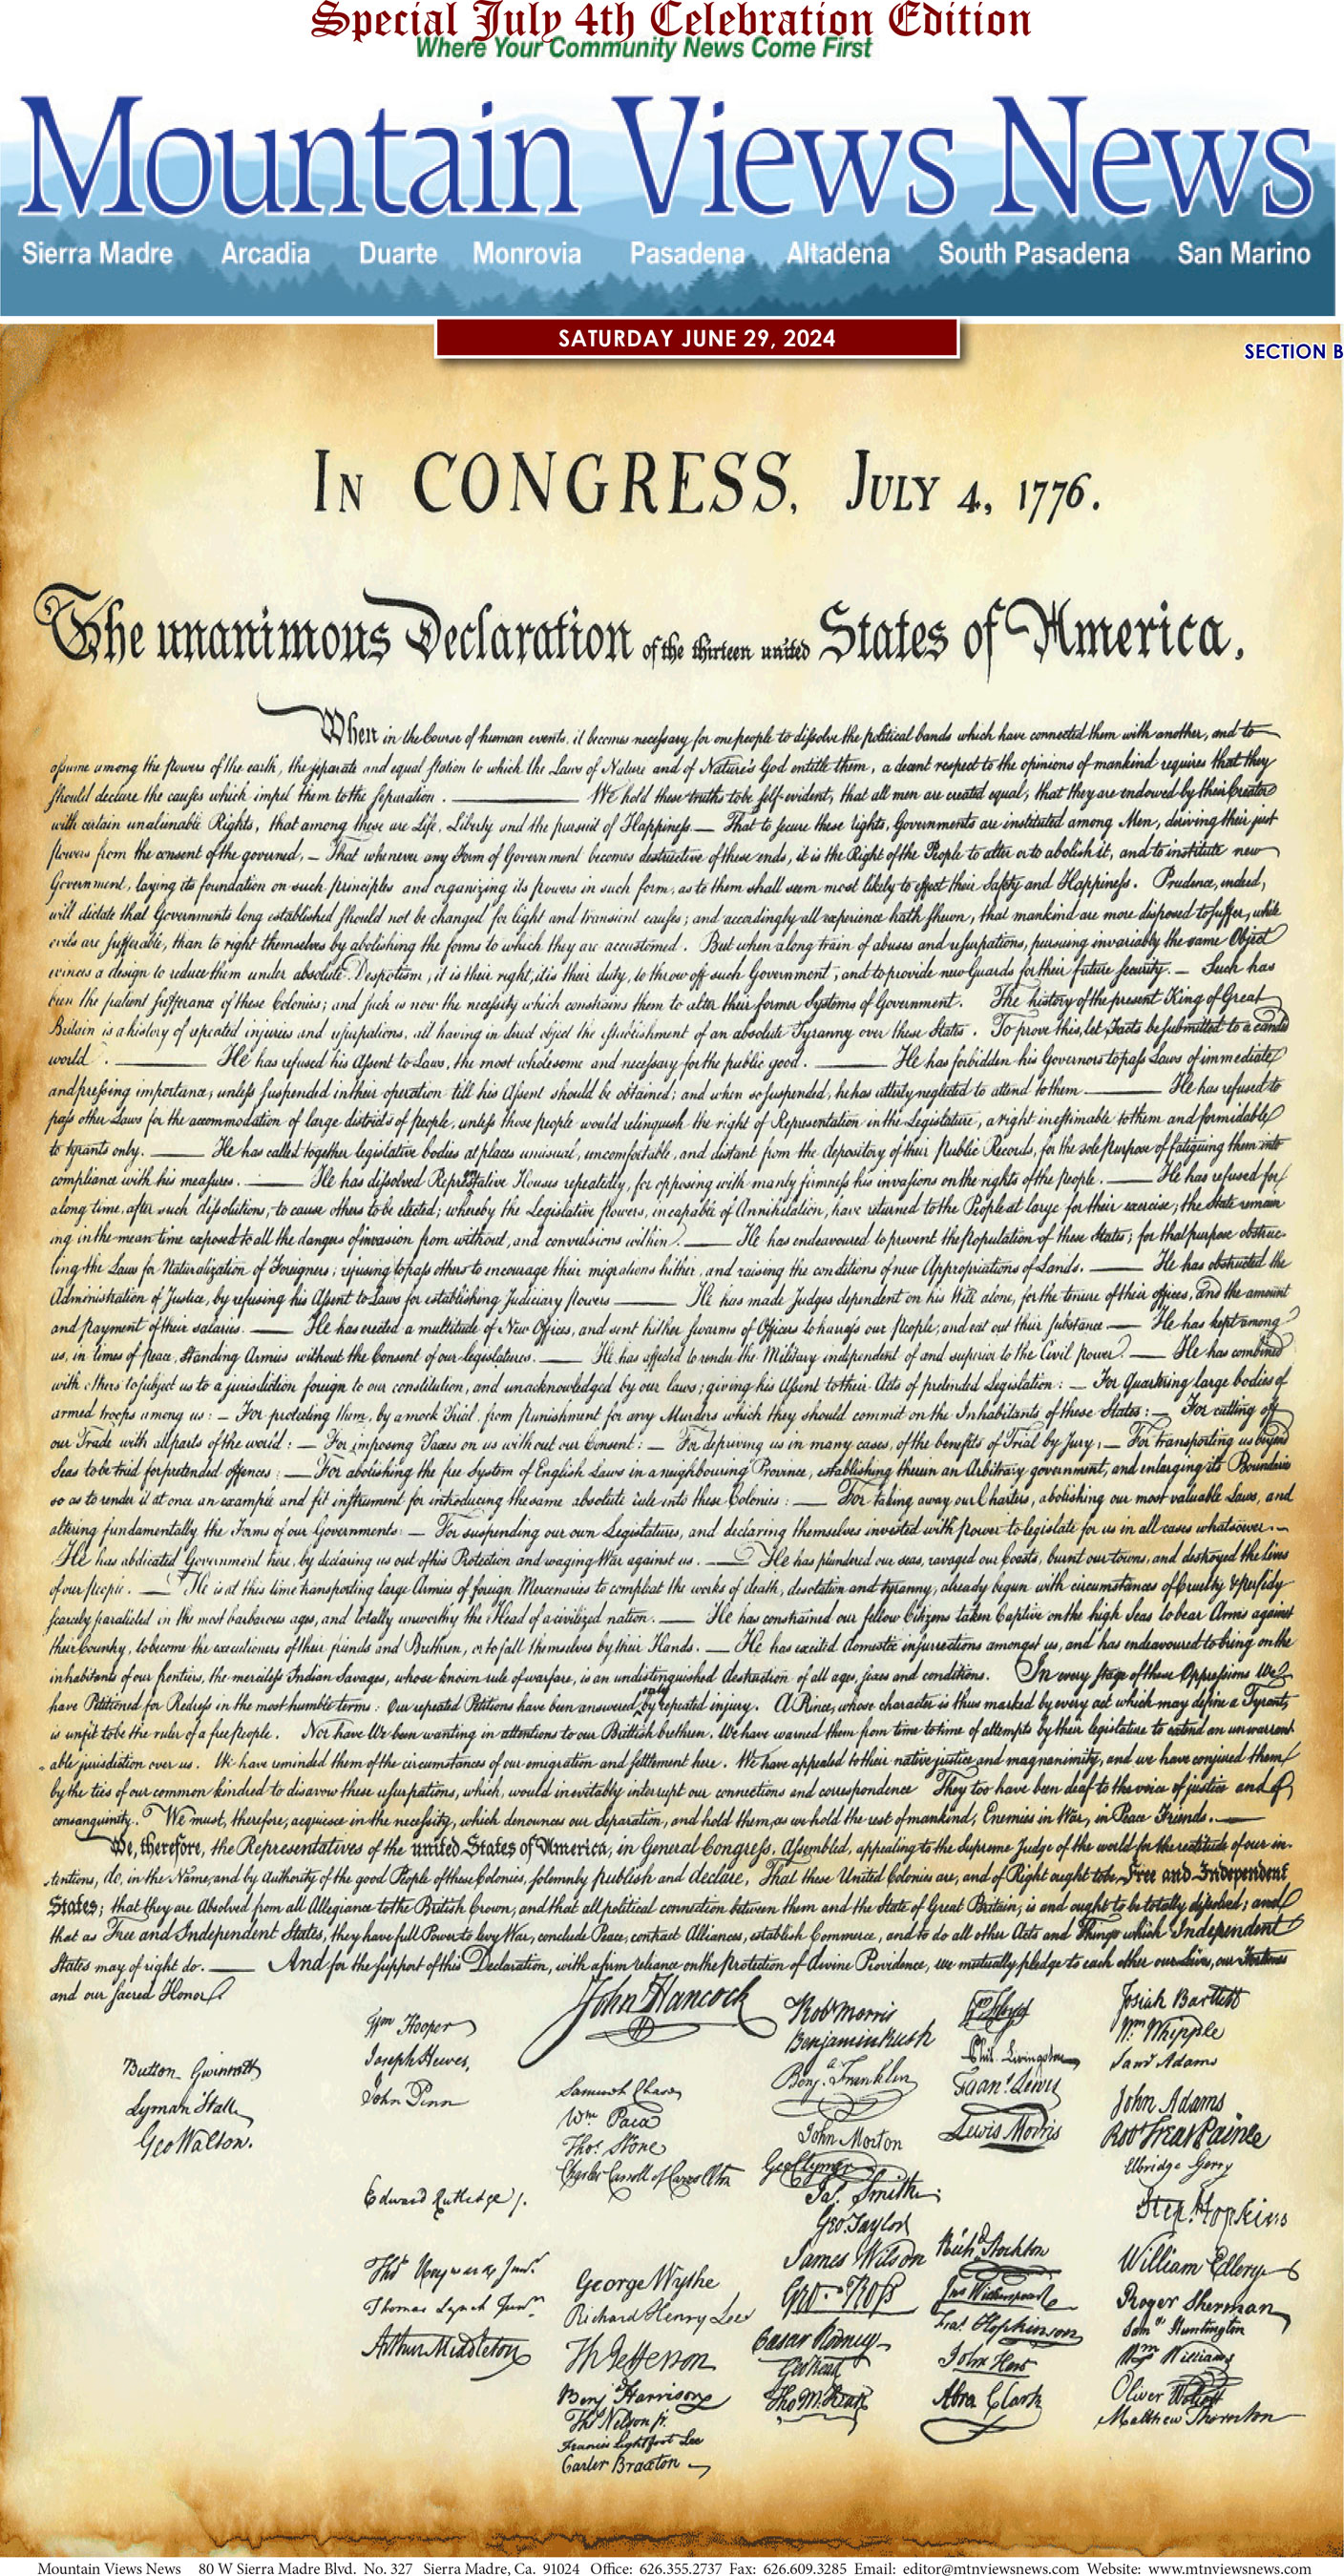 Special July 4th Celebration Edition
Where Your Community News Come First
Mountain Views News
Sierra Madre Arcadia Duarte Monrovia Pasadena Altadena South Pasadena San Marino
SATURDAY JUNE 29, 2024
SECTION B
IN CONGRESS, JULY 4, 1776.
The unanimous Declaration of the thirteen united States of America,
When in the Course of human events, it becomes necessary for one people to dissolve the political bands which have connected them with another, and to
assume among the powers of the earth, the separate and equal station to which the Laws of Nature and of Nature's God entitle them, a decent respect to the opinions of mankind requires that they
should declare the causes which impel them to the separation. We hold these truths to be self-evident, that all men are created equal, that they are endowed by their Creator
with certain unalienable Rights, that among these are Life, Liberty and the pursuit of Happiness.— That to secure these rights, Governments are instituted among Men, deriving their just
powers from the consent of the governed,— That whenever any Form of Government becomes destructive of these ends, it is the Right of the People to alter or to abolish it, and to institute new
Government, laying its foundation on such principles and organizing its powers in such form, as to them shall seem most likely to effect their Safety and Happiness. Prudence, indeed,
will dictate that Governments long established should not be changed for light and transient causes; and accordingly all experience hath shewn, that mankind are more disposed to suffer, while
evils are sufferable, than to right themselves by abolishing the forms to which they are accustomed. But when a long train of abuses and usurpations, pursuing invariably the same Object
evinces a design to reduce them under absolute Despotism, it is their right, it is their duty, to throw off such Government, and to provide new Guards for their future security.— Such has
been the patient sufferance of these Colonies; and such is now the necessity which constrains them to alter their former Systems of Government. The history of the present King of Great
Britain is a history of repeated injuries and usurpations, all having in direct object the establishment of an absolute Tyranny over these States. To prove this, let Facts be submitted to a candid
world. He has refused his Assent to Laws, the most wholesome and necessary for the public good. He has forbidden his Governors to pass Laws of immediate
and pressing importance, unless suspended in their operation till his Assent should be obtained; and when so suspended, he has utterly neglected to attend to them. He has refused to
pass other Laws for the accommodation of large districts of people, unless those people would relinquish the right of Representation in the Legislature, a right inestimable to them and formidable
to tyrants only. He has called together legislative bodies at places unusual, uncomfortable, and distant from the depository of their Public Records, for the sole purpose of fatiguing them into
compliance with his measures. He has dissolved Representative Houses repeatedly, for opposing with manly firmness his invasions on the rights of the people. He has refused for
a long time, after such dissolutions, to cause others to be elected; whereby the Legislative powers, incapable of Annihilation, have returned to the People at large for their exercise; the State remain
ing in the mean time exposed to all the dangers of invasion from without, and convulsions within. He has endeavoured to prevent the population of these States; for that purpose obstruc-
ting the Laws for Naturalization of Foreigners; refusing to pass others to encourage their migrations hither, and raising the conditions of new Appropriations of Lands. He has obstructed the
Administration of Justice, by refusing his Assent to Laws for establishing Judiciary powers. He has made Judges dependent on his Will alone, for the tenure of their offices, and the amount
and payment of their salaries. He has erected a multitude of New Offices, and sent hither swarms of Officers to harrass our people, and eat out their substance. He has kept among
us, in times of peace, Standing Armies without the Consent of our legislatures. He has affected to render the Military independent of and superior to the Civil power. He has combined
with others to subject us to a jurisdiction foreign to our constitution, and unacknowledged by our laws; giving his Assent to their Acts of pretended Legislation: — For Quartering large bodies of
armed troops among us: — For protecting them, by a mock Trial, from punishment for any Murders which they should commit on the Inhabitants of these States: — For cutting off
our Trade with all parts of the world: — For imposing Taxes on us without our Consent: — For depriving us in many cases, of the benefits of Trial by Jury: — For transporting us beyond
Seas to be tried for pretended offences: — For abolishing the free System of English Laws in a neighbouring Province, establishing therein an Arbitrary government, and enlarging its Boundaries
so as to render it at once an example and fit instrument for introducing the same absolute rule into these Colonies: — For taking away our Charters, abolishing our most valuable Laws, and
altering fundamentally the Forms of our Governments: — For suspending our own Legislatures, and declaring themselves invested with power to legislate for us in all cases whatsoever.—
He has abdicated Government here, by declaring us out of his Protection and waging War against us. He has plundered our seas, ravaged our Coasts, burnt our towns, and destroyed the lives
of our people. He is at this time transporting large Armies of foreign Mercenaries to compleat the works of death, desolation and tyranny, already begun with circumstances of Cruelty & perfidy
scarcely paralleled in the most barbarous ages, and totally unworthy the Head of a civilized nation. He has constrained our fellow Citizens taken Captive on the high Seas to bear Arms against
their Country, to become the executioners of their friends and Brethren, or to fall themselves by their Hands. He has excited domestic insurrections amongst us, and has endeavoured to bring on the
inhabitants of our frontiers, the merciless Indian Savages, whose known rule of warfare, is an undistinguished destruction of all ages, sexes and conditions. In every stage of these Oppressions We
have Petitioned for Redress in the most humble terms: Our repeated Petitions have been answered only by repeated injury. A Prince, whose character is thus marked by every act which may define a Tyrant,
is unfit to be the ruler of a free people. Nor have We been wanting in attentions to our Brittish brethren. We have warned them from time to time of attempts by their legislature to extend an unwarrant
able jurisdiction over us. We have reminded them of the circumstances of our emigration and settlement here. We have appealed to their native justice and magnanimity, and we have conjured them
by the ties of our common kindred to disavow these usurpations, which, would inevitably interrupt our connections and correspondence. They too have been deaf to the voice of justice and of
consanguinity. We must, therefore, acquiesce in the necessity, which denounces our Separation, and hold them, as we hold the rest of mankind, Enemies in War, in Peace Friends.
We, therefore, the Representatives of the united States of America, in General Congress, Assembled, appealing to the Supreme Judge of the world for the rectitude of our in-
tentions, do, in the Name, and by Authority of the good People of these Colonies, solemnly publish and declare, That these United Colonies are, and of Right ought to be Free and Independent
States; that they are Absolved from all Allegiance to the British Crown, and that all political connection between them and the State of Great Britain, is and ought to be totally dissolved; and
that as Free and Independent States, they have full Power to levy War, conclude Peace, contract Alliances, establish Commerce, and to do all other Acts and Things which Independent
States may of right do. And for the support of this Declaration, with a firm reliance on the Protection of divine Providence, we mutually pledge to each other our Lives, our Fortunes
and our sacred Honor.
Button Gwinnett
Lyman Hall
Geo Walton.
Wm Hooper
Joseph Hewes,
John Penn
Edward Rutledge /.
Thos Heyward Junr.
Thomas Lynch Junr.
Arthur Middleton
John Hancock
Samuel Chase
Wm. Paca
Thos. Stone
Charles Carroll of Carrollton
George Wythe
Richard Henry Lee
Th Jefferson
Benj Harrison
Thos Nelson jr.
Francis Lightfoot Lee
Carter Braxton
Robt Morris
Benjamin Rush
Benja. Franklin
John Morton
Geo Clymer
Jas. Smith.
Geo. Taylor
James Wilson
Geo. Ross
Caesar Rodney
Geo Read
Tho M:Kean
Wm Floyd
Phil. Livingston
Frans. Lewis
Lewis Morris
Richd. Stockton
Jno Witherspoon
Fras. Hopkinson
John Hart
Abra Clark
Josiah Bartlett
Wm. Whipple
Saml Adams
John Adams
Robt Treat Paine
Elbridge Gerry
Step. Hopkins
William Ellery
Roger Sherman
Saml. Huntington
Wm. Williams
Oliver Wolcott
Matthew Thornton
Mountain Views News 80 W Sierra Madre Blvd. No. 327 Sierra Madre, Ca. 91024 Office: 626.355.2737 Fax: 626.609.3285 Email: editor@mtnviewsnews.com Website: www.mtnviewsnews.com